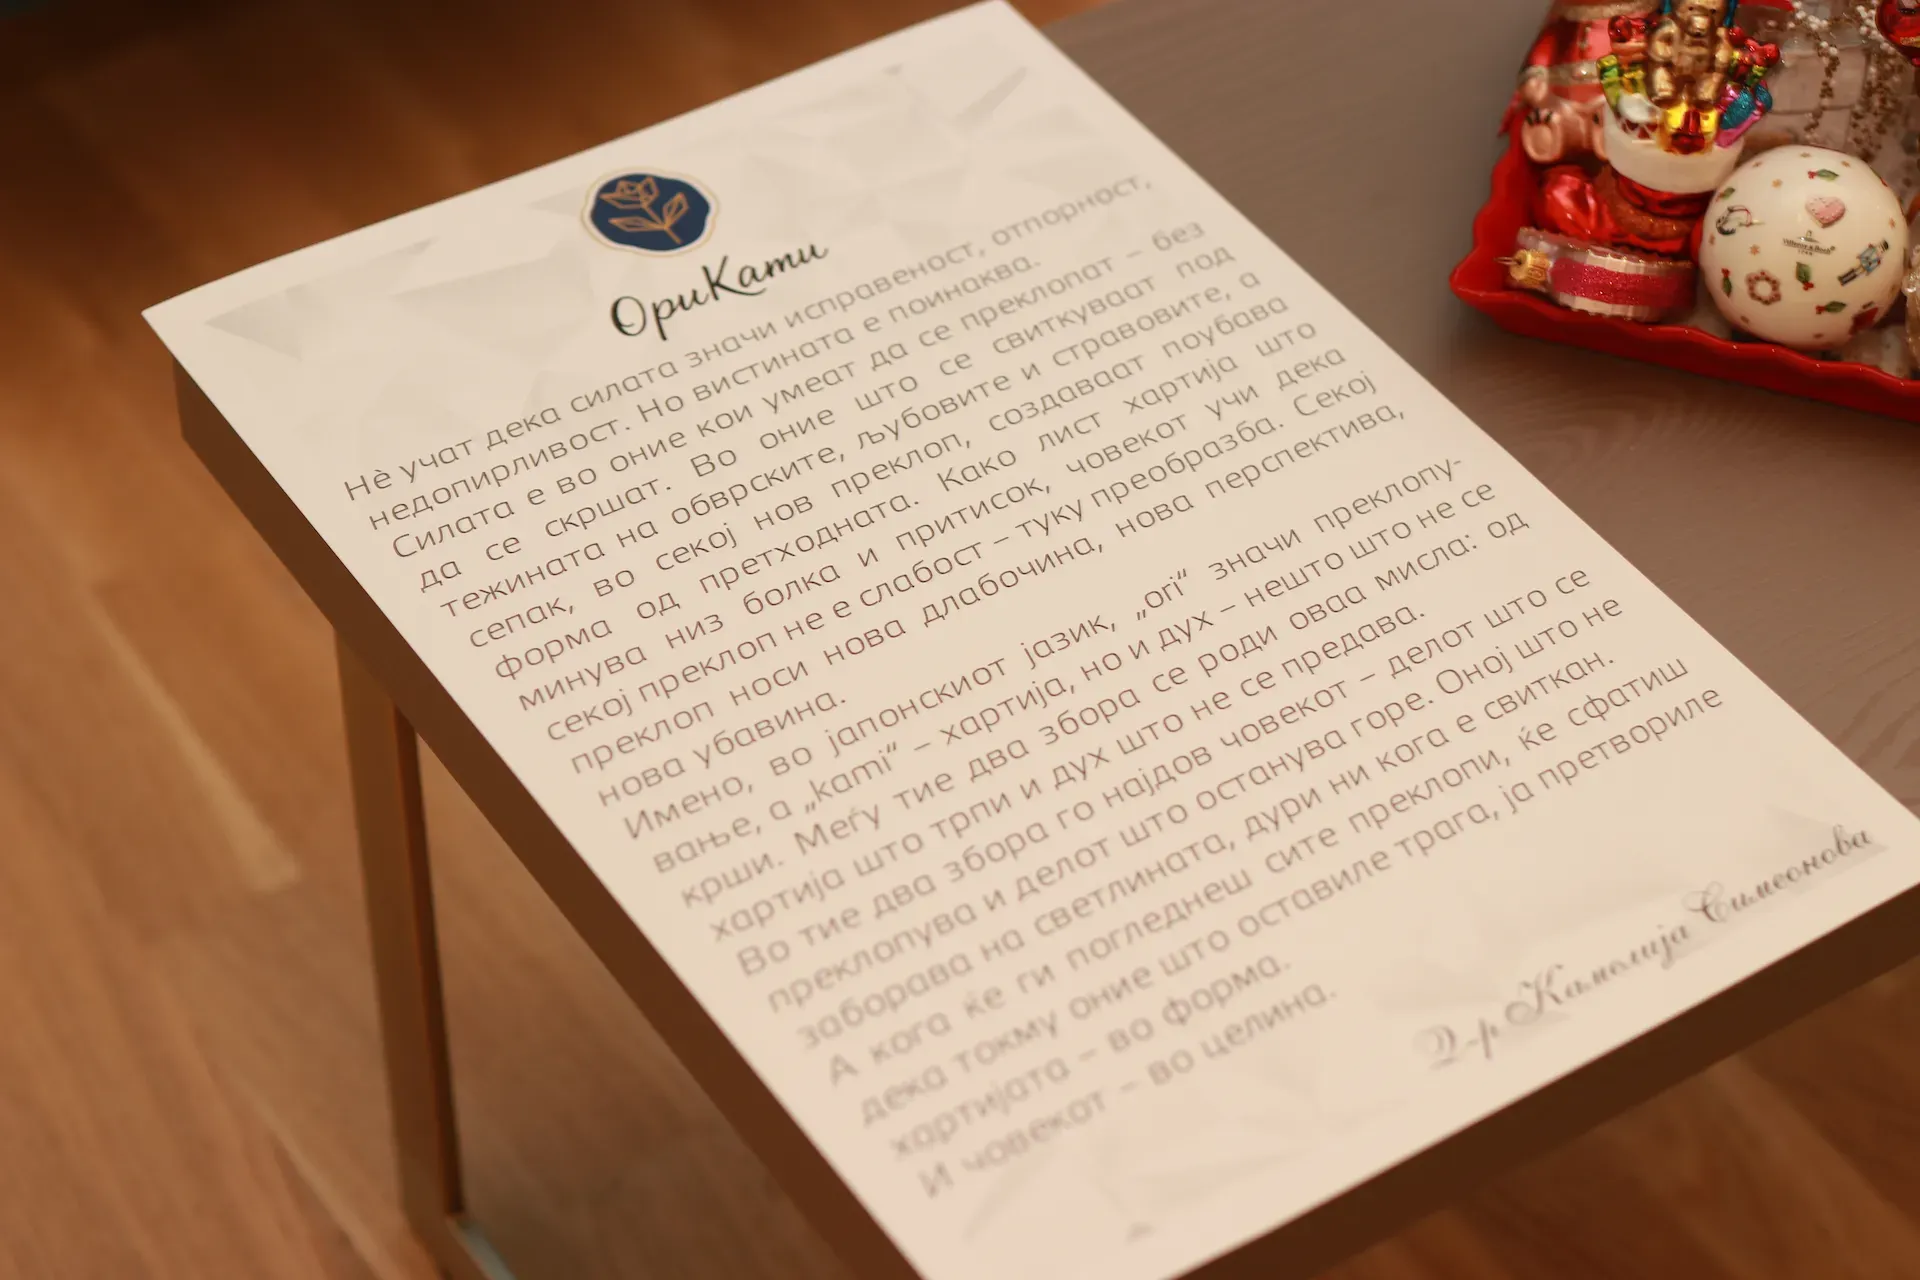 ОриКати
Нѐ учат дека силата значи исправеност, отпорност,
недопирливост. Но вистината е поинаква.
Силата е во оние кои умеат да се преклопат – без
да се скршат. Во оние што се свиткуваат под
тежината на обврските, љубовите и стравовите, а
сепак, во секој нов преклоп, создаваат поубава
форма од претходната. Како лист хартија што
минува низ болка и притисок, човекот учи дека
секој преклоп не е слабост – туку преобразба. Секој
преклоп носи нова длабочина, нова перспектива,
нова убавина.
Имено, во јапонскиот јазик, „ori“ значи преклопу-
вање, а „kami“ – хартија, но и дух – нешто што не се
крши. Меѓу тие два збора се роди оваа мисла: од
хартија што трпи и дух што не се предава.
Во тие два збора го најдов човекот – делот што се
преклопува и делот што останува горе. Оној што не
заборава на светлината, дури ни кога е свиткан.
А кога ќе ги погледнеш сите преклопи, ќе сфатиш
дека токму оние што оставиле трага, ја претвориле
хартијата – во форма.
И човекот – во целина.
Д-р Камелија Симеонова
Villeroy & Boch